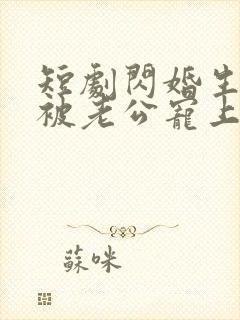 短劇閃婚生
被老公寵上
蘇咪